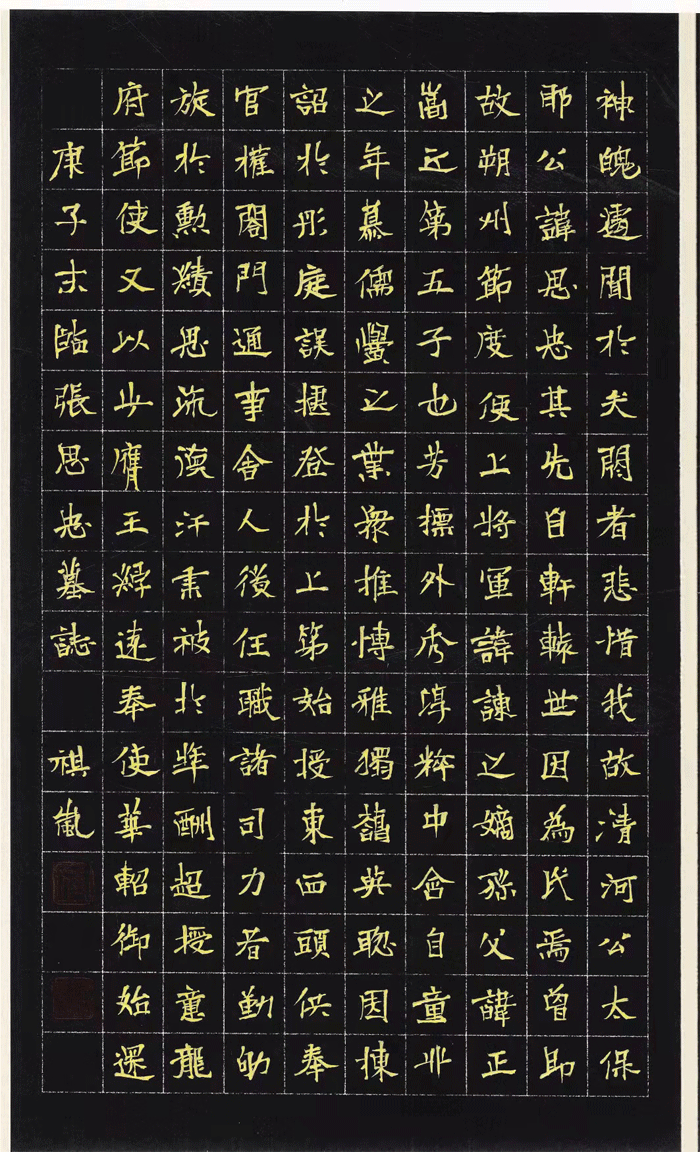 神魄遽聞於天閼者悲惜我故清河公太保
耶公諱思忠其先自軒轅世因為氏焉曾即
故朔州節度使上將軍諱諫之嫡孫父諱正
嵩迺第五子也芳摽外秀淳粹中會自童丱
之年慕儒黌之業衆推愽雅獨蘊英聦因揀
詔於彤庭誤擢登於上第始授東西頭供奉
官權閣門通事舍人後任職諸司力着勤劬
旋於勲績思流渙汗秉被於牽酬超授寵
府節使又以少膺王綍遠奉使華軺御始還
庚子末臨張思忠墓誌 祺嵐